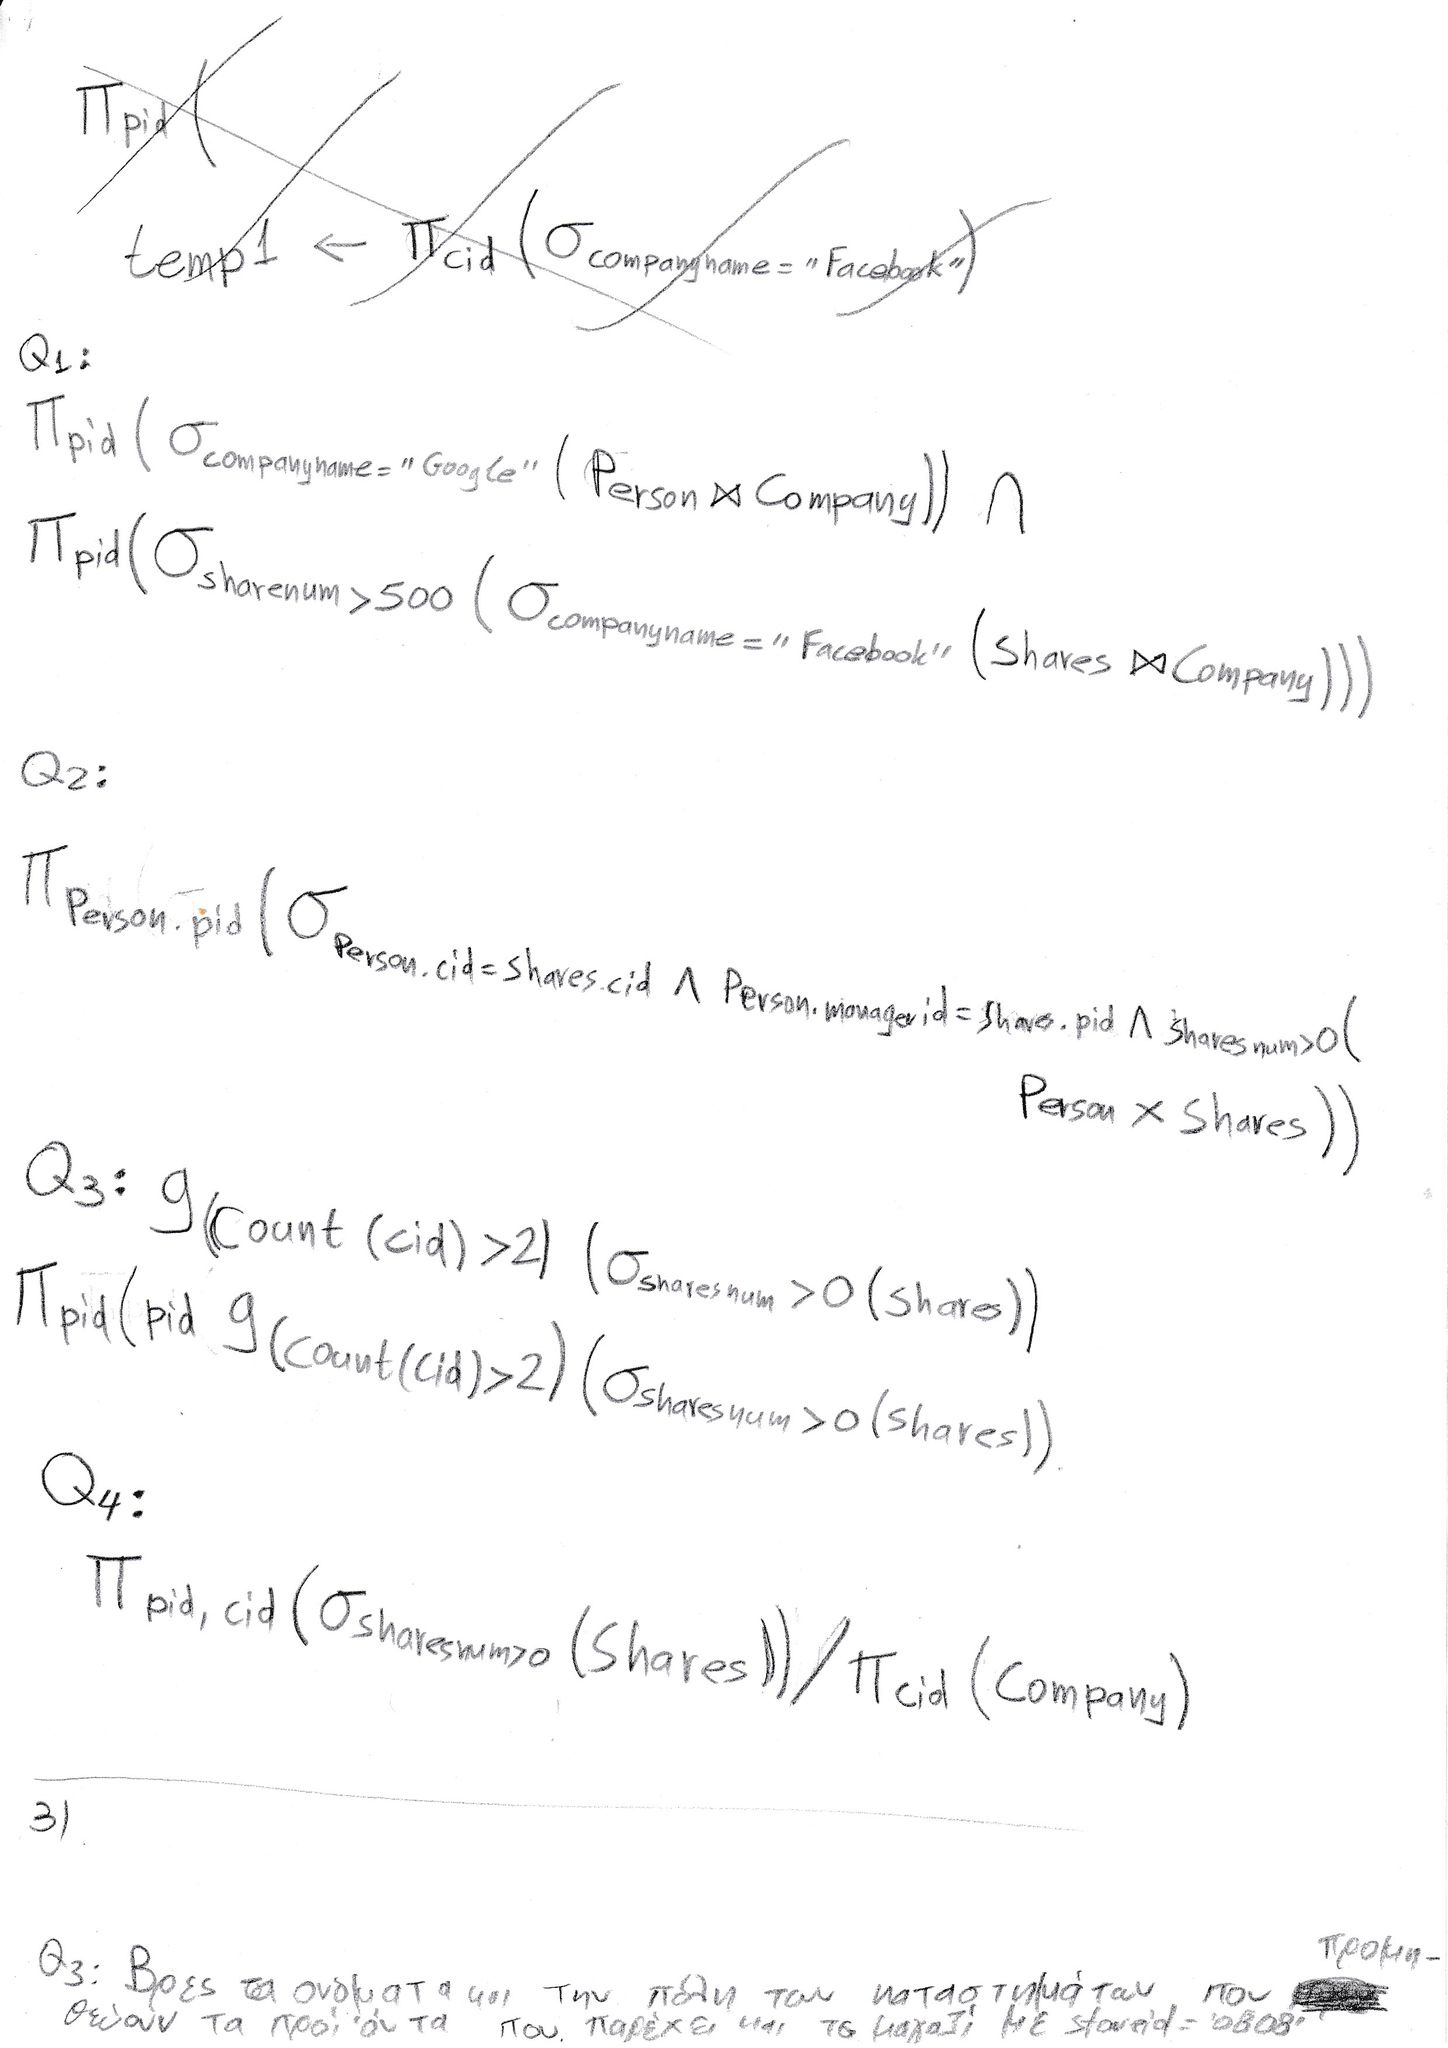 π pid (
temp1 ← π cid (σ companyname = "Facebook")
Q1:
π pid (σ companyname = "Google" (Person ⋈ Company)) ∩
π pid (σ sharenum > 500 (σ companyname = "Facebook" (Shares ⋈ Company)))
Q2:
π Person.pid (σ Person.cid = Shares.cid ∧ Person.managerid = Shares.pid ∧ sharesnum > 0 (
Person × Shares))
Q3: g (Count (cid) > 2) (σ sharesnum > 0 (Shares))
π pid (pid g (Count (cid) > 2) (σ sharesnum > 0 (Shares))
Q4:
π pid, cid (σ sharesnum > 0 (Shares)) / π cid (Company)
3)
Q3: Βρες τα ονόματα και την πόλη των καταστημάτων που προμη-
θεύουν τα προϊόντα που παρέχει και το μαγαζί με storeid = '0808'